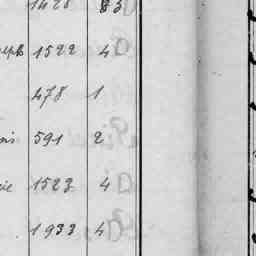 1428 3
eph 1522 4
478 1
ois 591 2
ie 1523 4
1933 4